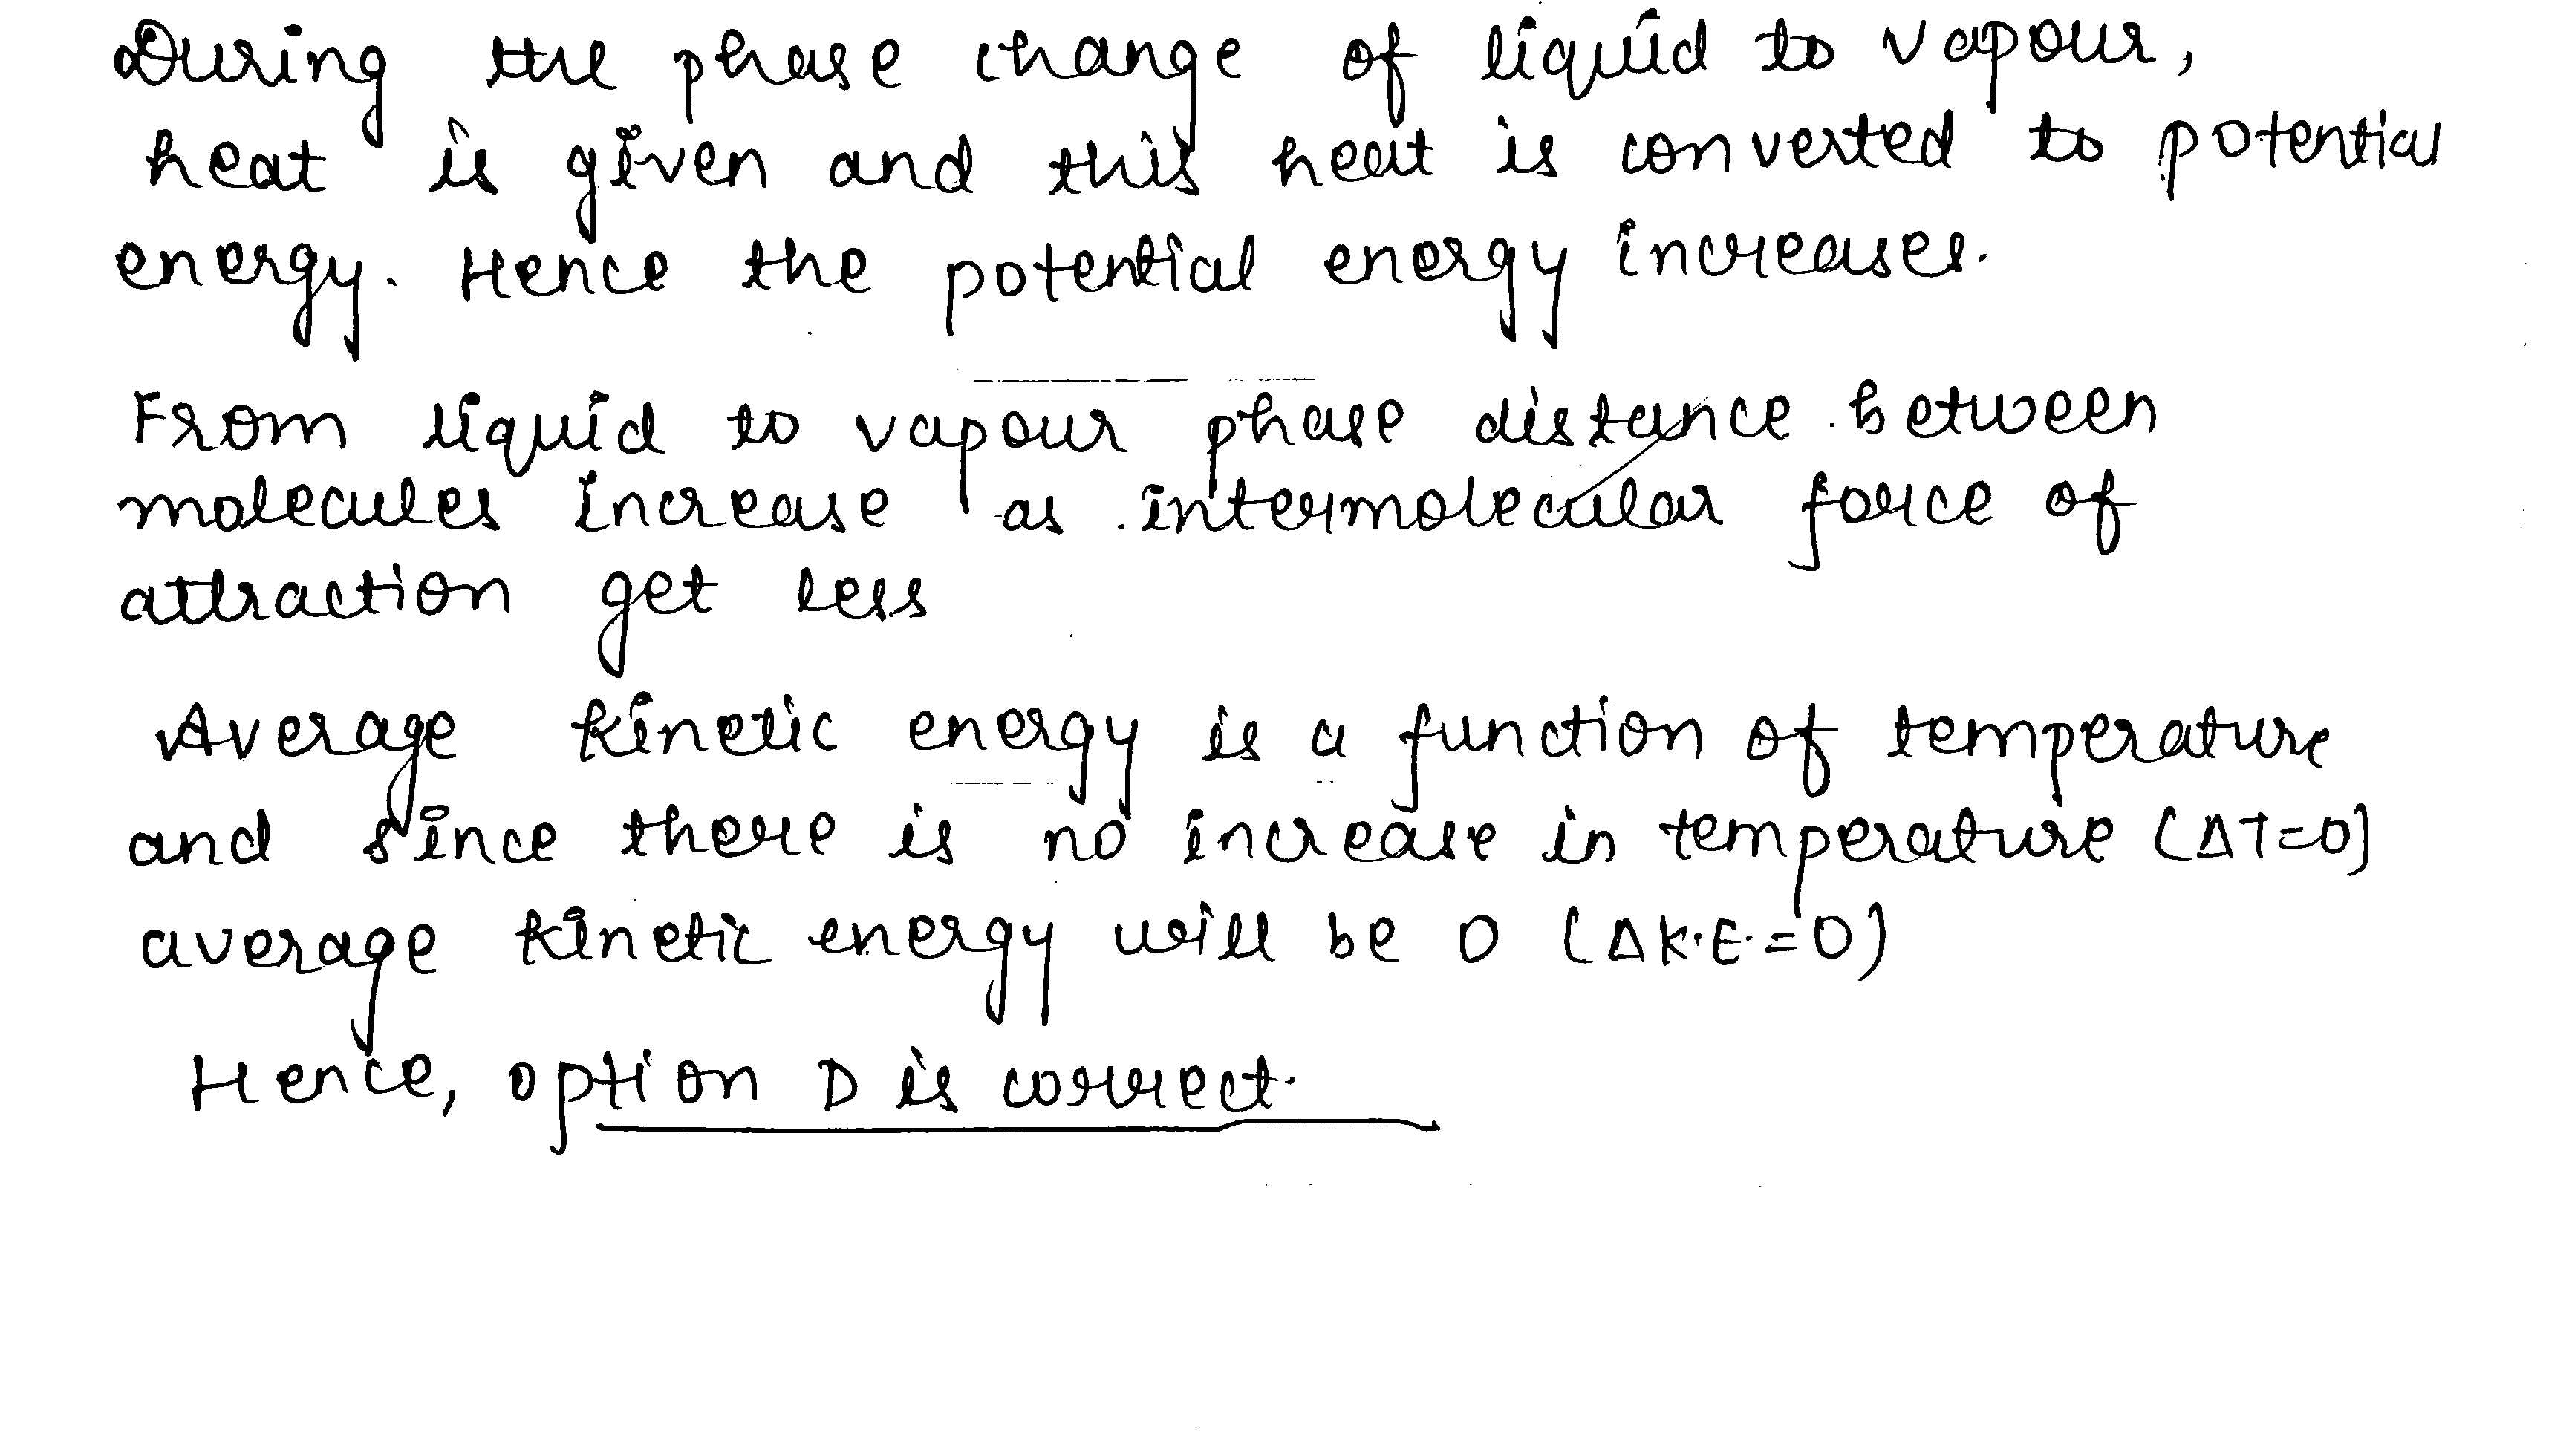 During the phase change of liquid to vapour,
heat is given and this heat is converted to potential
energy. Hence the potential energy increases.
From liquid to vapour phase distance between
molecules increase as intermolecular force of
attraction get less
Average kinetic energy is a function of temperature
and since there is no increase in temperature (ΔT=0)
average kinetic energy will be 0 (ΔK.E.=0)
Hence, option D is correct.